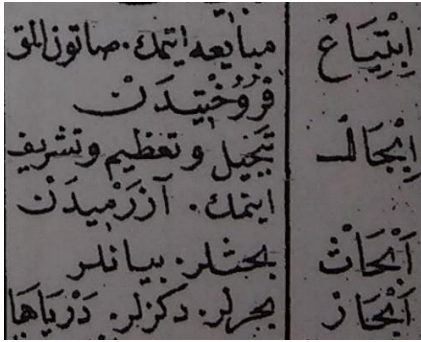 اِبْتِيَاعْ مبايعه ايتمك. صاتون المق
فُرُوخْتِيدَنْ
اِبْجَالْ تبجيل وتعظيم وتشريف
ايتمك. آزَرْمِيدَنْ
اَبْحَاثْ بحثلر. بيانلر
اَبْحَارْ بحرلر. دكزلر. دَرْيَاهَا